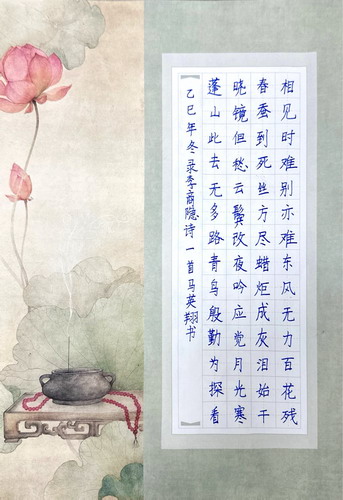 相见时难别亦难东风无力百花残
春蚕到死丝方尽蜡炬成灰泪始干
晓镜但愁云鬓改夜吟应觉月光寒
蓬山此去无多路青鸟殷勤为探看
乙巳年冬录李商隐诗一首马英翔书